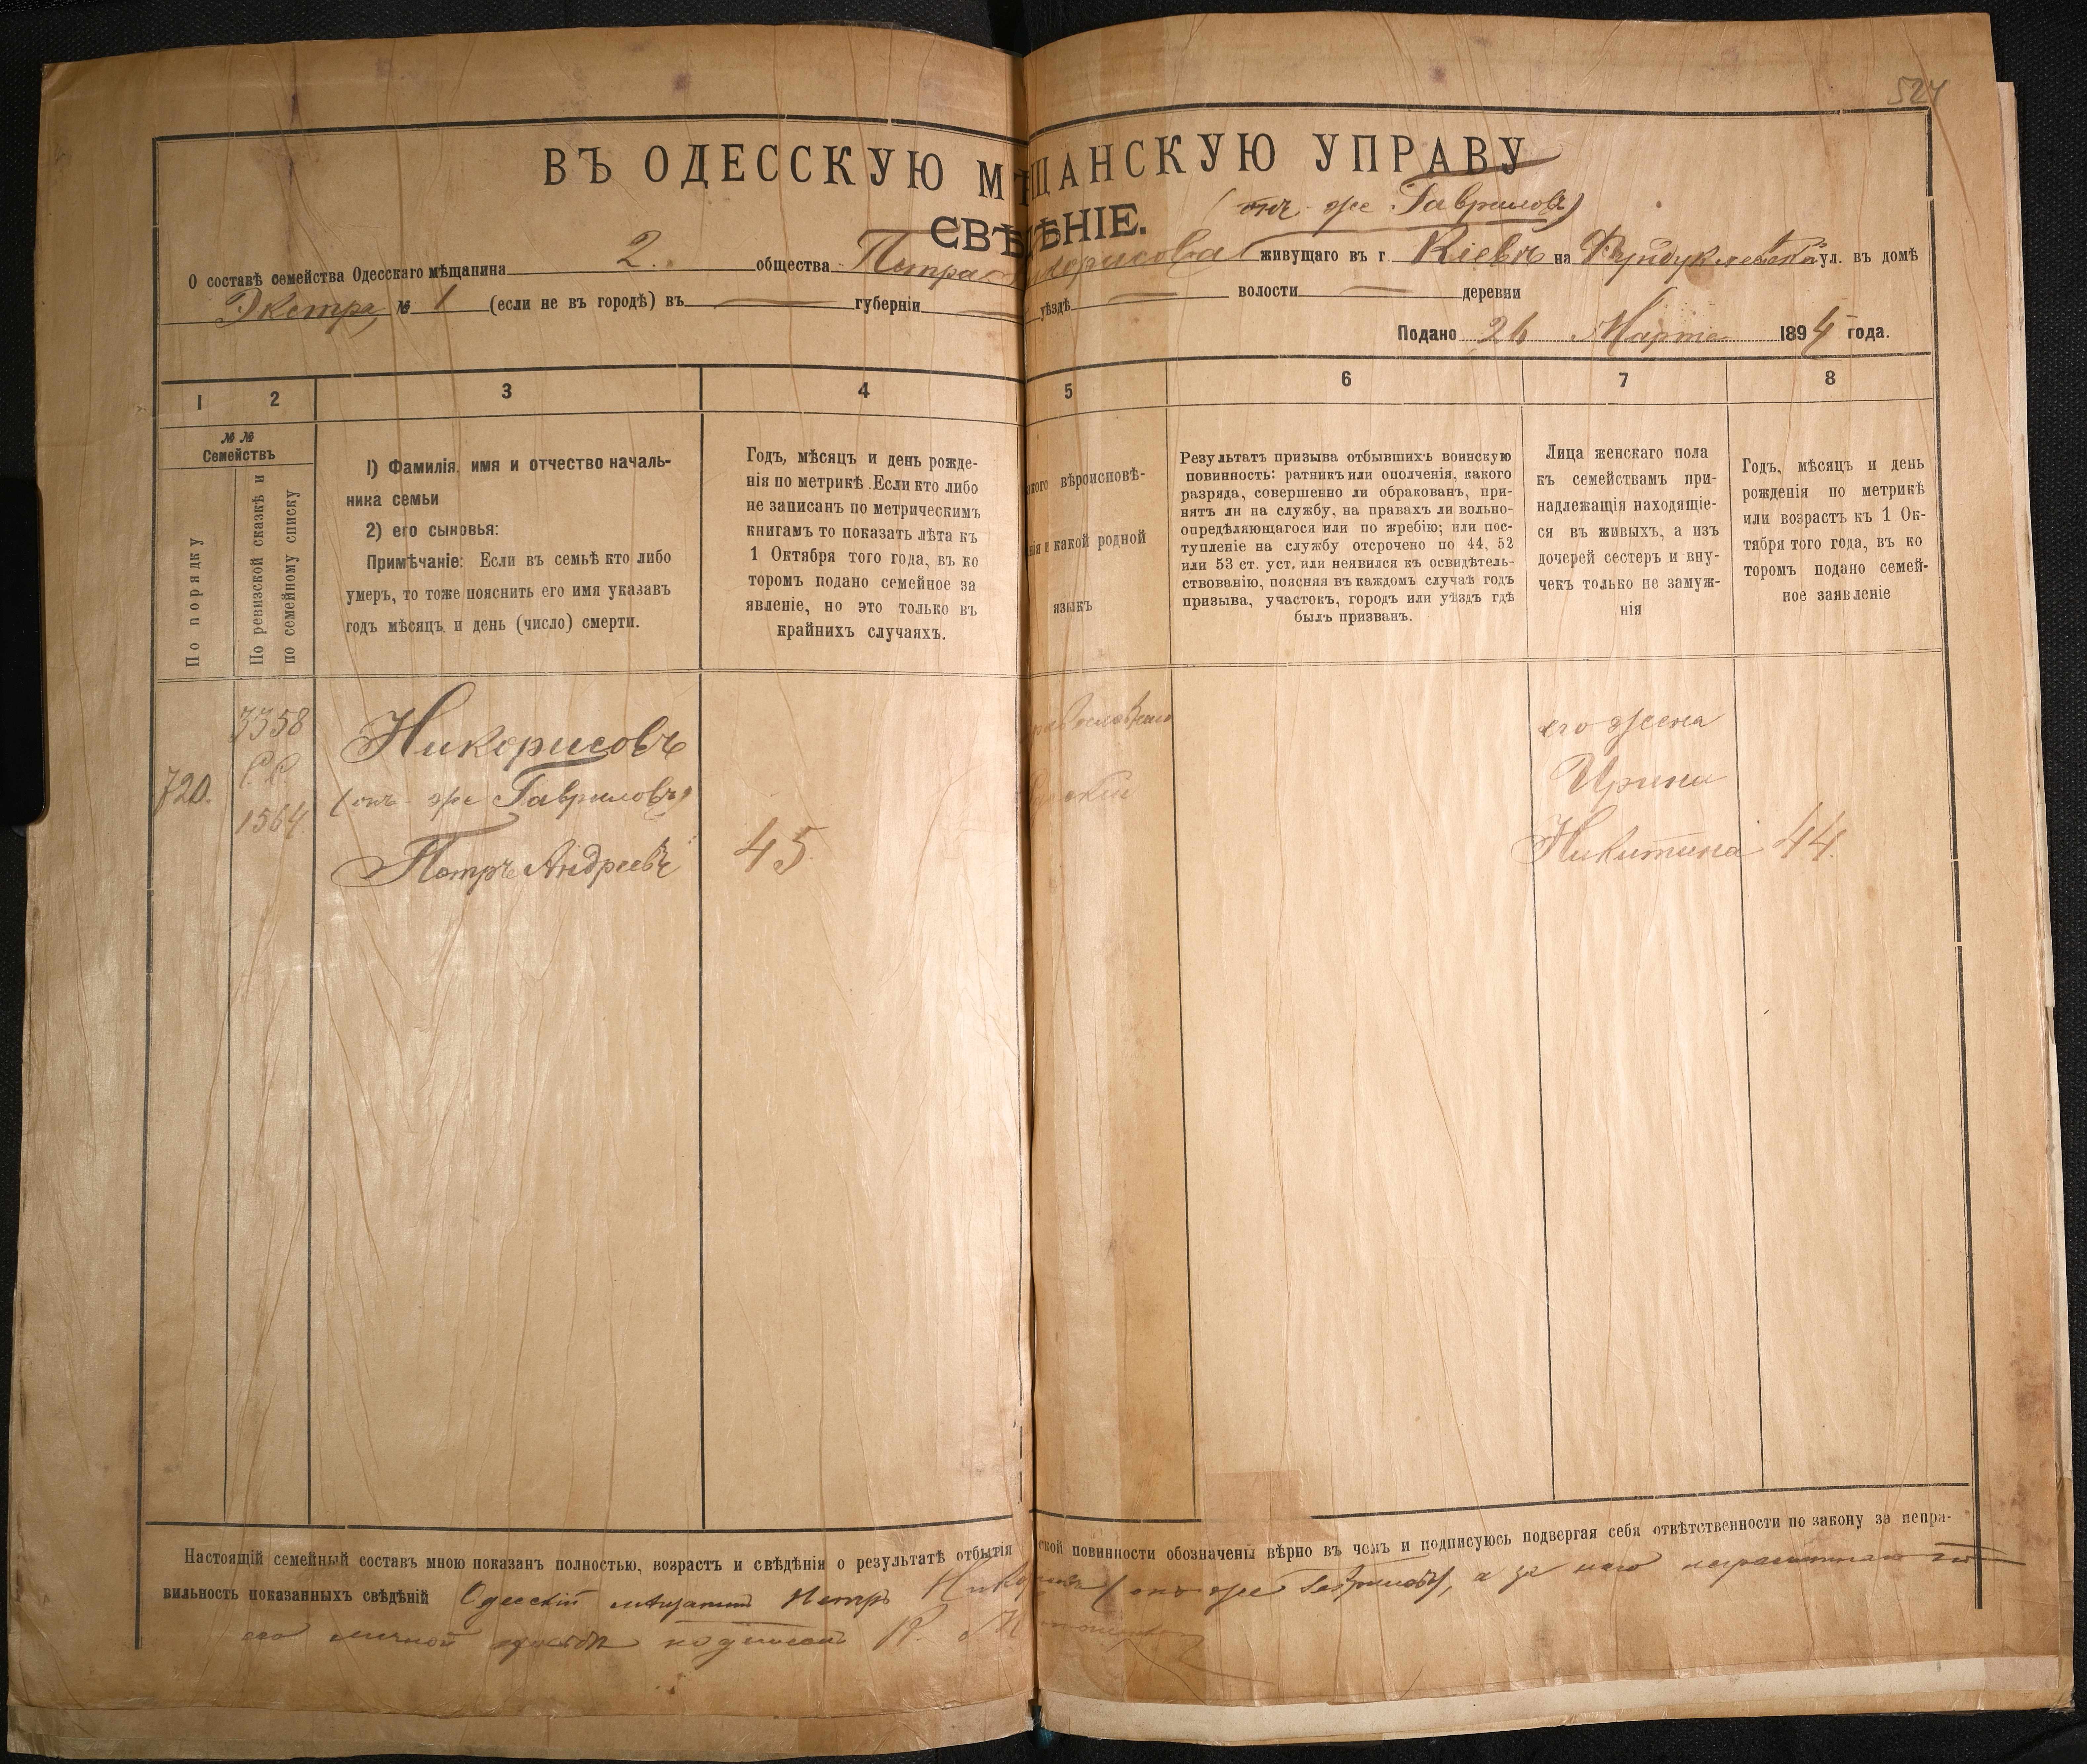 524
ВЪ ОДЕССКУЮ МѢЩАНСКУЮ УПРАВУ
(онъ-же Гавриловъ)
СВѢДѢНІЕ.
О составѣ семейства Одесскаго мѣщанина 2. общества Петра Никорисова живущаго въ г. Кіевѣ на Фундуклеевской ул. въ домѣ
Экстра, № 1 (если не въ городѣ) въ — губерніи — уѣздѣ — волости — деревни
Подано 26 Марта 1894 года.
1 2 3 4 5 6 7 8
№ №
Семействъ
По порядку
По ревизской сказкѣ и
по семейному списку
1) Фамилія, имя и отчество началь-
ника семьи
2) его сыновья:
Примѣчаніе: Если въ семьѣ кто либо
умеръ, то тоже пояснить его имя указавъ
годъ мѣсяцъ и день (число) смерти.
Годъ, мѣсяцъ и день рожде-
нія по метрикѣ. Если кто либо
не записанъ по метрическимъ
книгамъ то показать лѣта къ
1 Октября того года, въ ко
торомъ подано семейное за
явленіе, но это только въ
крайнихъ случаяхъ.
вѣроисповѣ-
и какой родной
языкъ
Результатъ призыва отбывшихъ воинскую
повинность: ратникъ или ополченія, какого
разряда, совершенно ли обракованъ, при-
нятъ ли на службу, на правахъ ли вольно-
опредѣляющагося или по жребію; или пос-
тупленіе на службу отсрочено по 44, 52
или 53 ст. уст. или неявился къ освидѣтель-
ствованію, поясняя въ каждомъ случаѣ годъ
призыва, участокъ, городъ или уѣздъ гдѣ
былъ призванъ.
Лица женскаго пола
къ семействамъ при-
надлежащія находящіе-
ся въ живыхъ, а изъ
дочерей сестеръ и вну-
чекъ только не замуж-
нія
Годъ, мѣсяцъ и день
рожденія по метрикѣ
или возрастъ къ 1 Ок-
тября того года, въ ко
торомъ подано семей-
ное заявленіе
720.
3358
С.С.
1564
Никорисовъ
(онъ-же Гавриловъ)
Петръ Андреевъ
45
его жена
Ирина
Никитина
44.
Настоящій семейный составъ мною показанъ полностью, возрастъ и свѣдѣнія о результатѣ отбытія ской повинности обозначены вѣрно въ чемъ и подписуюсь подвергая себя отвѣтственности по закону за непра-
вильность показанныхъ свѣдѣній Одесскій мѣщанинъ Петръ (онъ же Гавриловъ), а за него неграмотнаго по
его личной просьбѣ